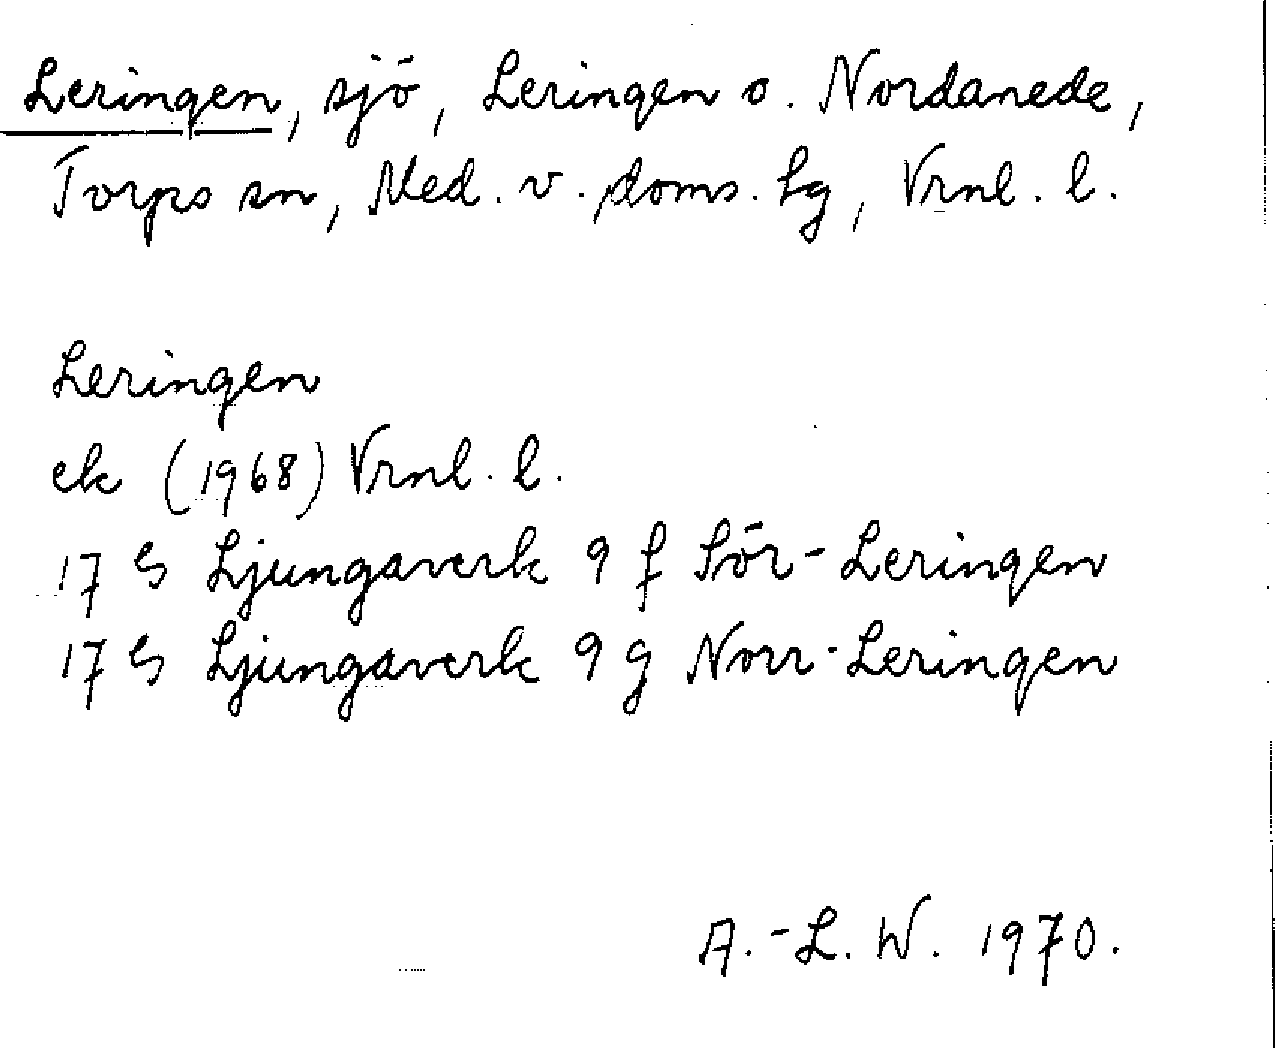 Leringen, sjö, Leringen o. Nordanede,
Torps sn, Med. v. doms. tg, Vrnl. l.
Leringen
ek (1968) Vrnl. l.
17 G Ljungaverk 9 f Sör-Leringen
17 G Ljungaverk 9 g Norr-Leringen
A.-L. W. 1970.